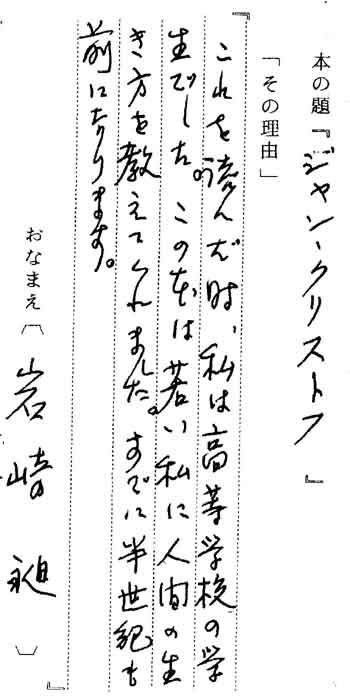 本の題『ジャン・クリストフ』
「その理由」
『これを読んだ時、私は高等学校の学
生でした。この本は若い私に人間の生
き方を教えてくれました。すでに半世紀も
前になります。』
おなまえ〔岩崎 昶〕